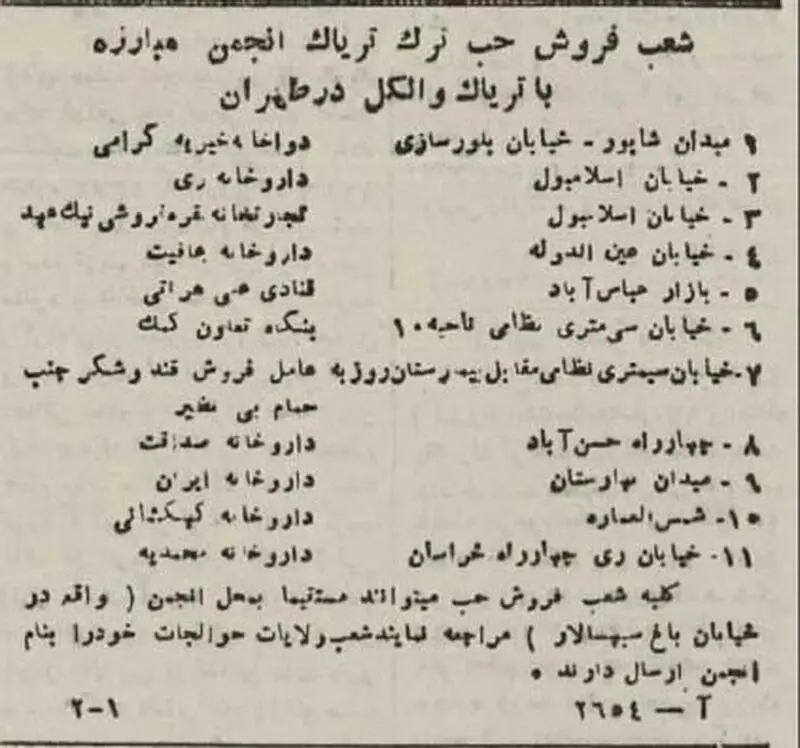 شعب فروش حب ترك ترياك انجمن مبارزه
با ترياك والكل درطهران
۱ ميدان شاپور - خيابان بلورسازی دواخانه خيريه گرامی
۲ - خيابان اسلامبول داروخانه ری
۳ - خيابان اسلامبول تجارتخانه نقره فروشی نيك عهد
۴ - خيابان عين الدوله داروخانه عافيت
۵ - بازار عباس آباد قنادی هراتی
۶ - خيابان سی متری نظامی ناحيه ۱۰ بنگاه تعاون كمك
۷-خيابان سيمتری نظامی مقابل بيمارستان روزبه عامل فروش قند و شكر جنب
حمام بی نظير
۸ - چهارراه حسن آباد داروخانه صداقت
۹ - ميدان بهارستان داروخانه ايران
۱۰- شمس العماره داروخانه كهكشانی
۱۱- خيابان ری چهارراه خراسان داروخانه محمديه
كليه شعب فروش حب ميتوانند مستقيما بمحل انجمن ( واقع در
خيابان باغ سپهسالار ) مراجعه نمايند شعب ولايات حوالجات خودرا بنام
انجمن ارسال دارند ۰
آ — ۲۶۵۴ ۱-۲